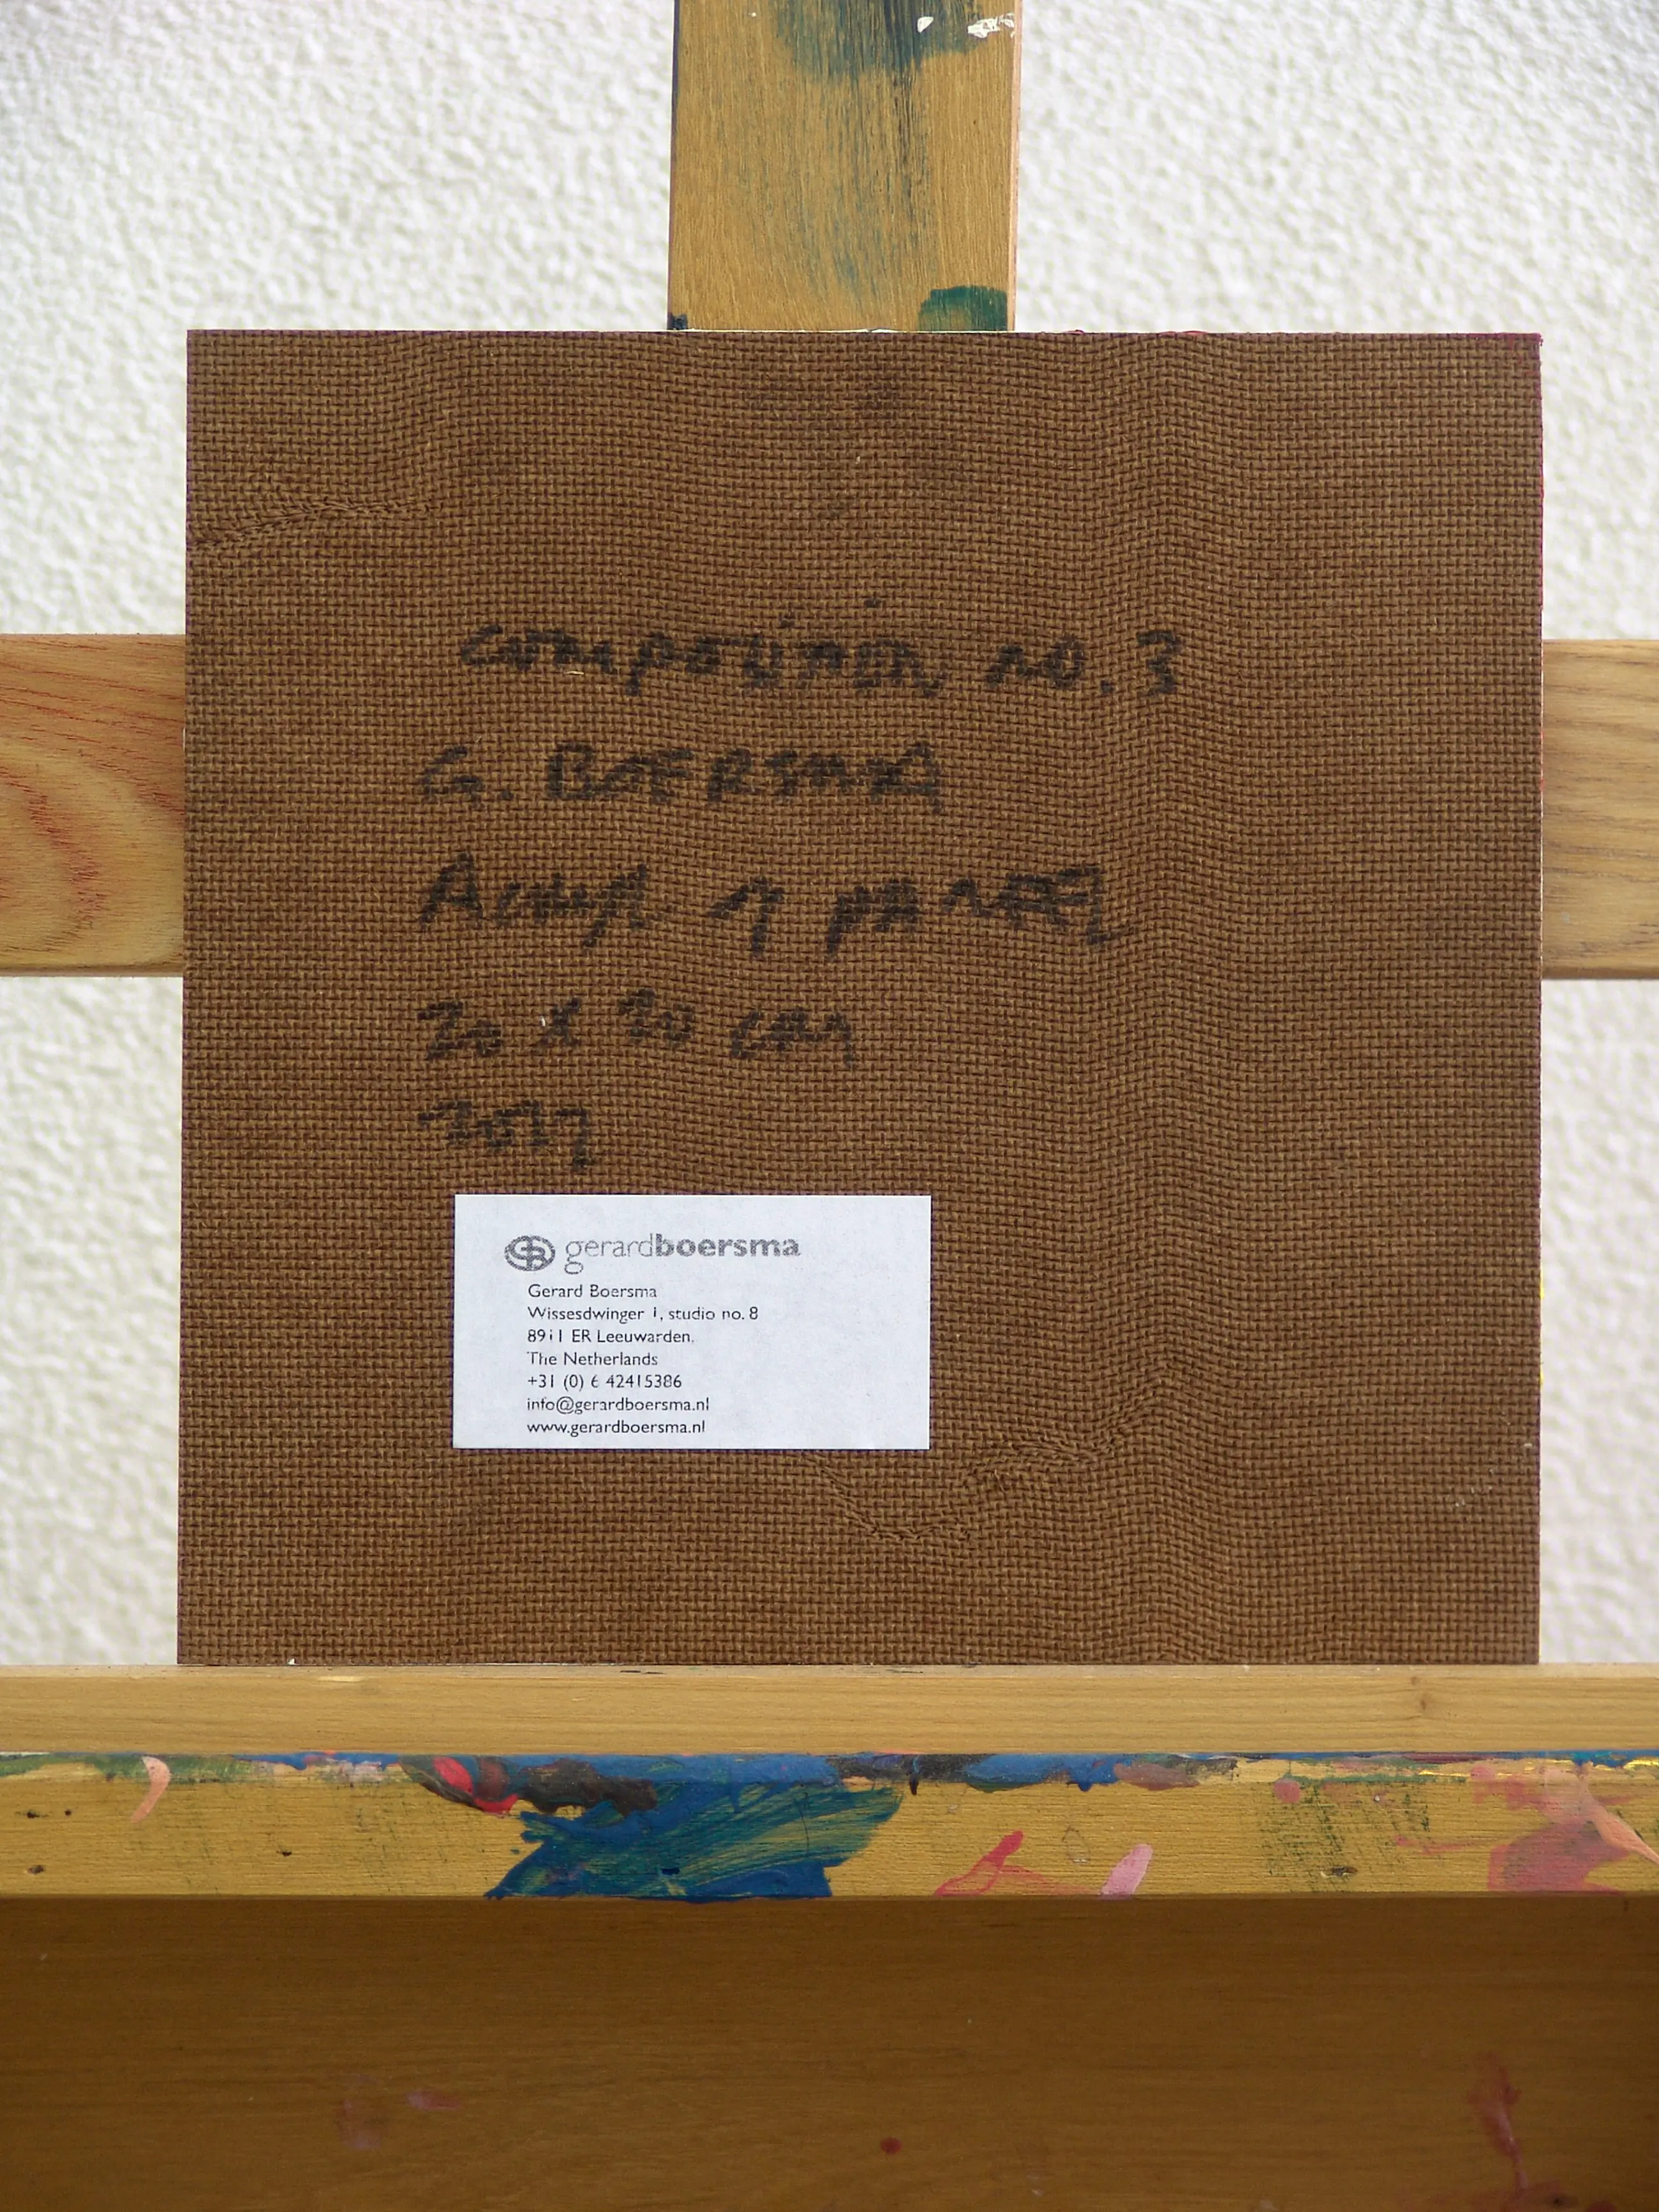 composition no. 3
G. BOERSMA
Acryl op paneel
20 x 20 cm
2017
gerardboersma
Gerard Boersma
Wissesdwinger 1, studio no. 8
8911 ER Leeuwarden,
The Netherlands
+31 (0) 6 42415386
info@gerardboersma.nl
www.gerardboersma.nl